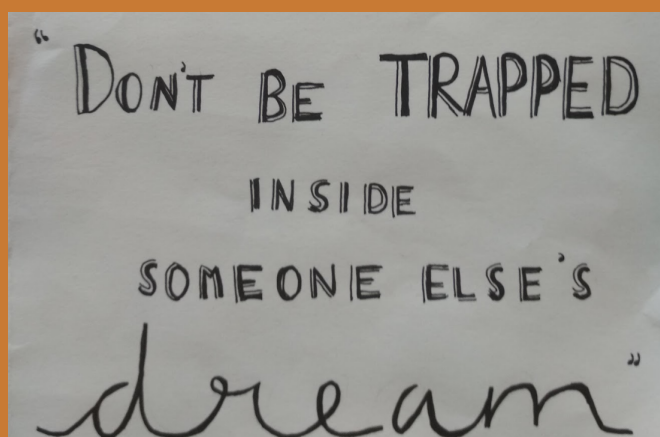 “DON'T BE TRAPPED
INSIDE
SOMEONE ELSE'S
dream”